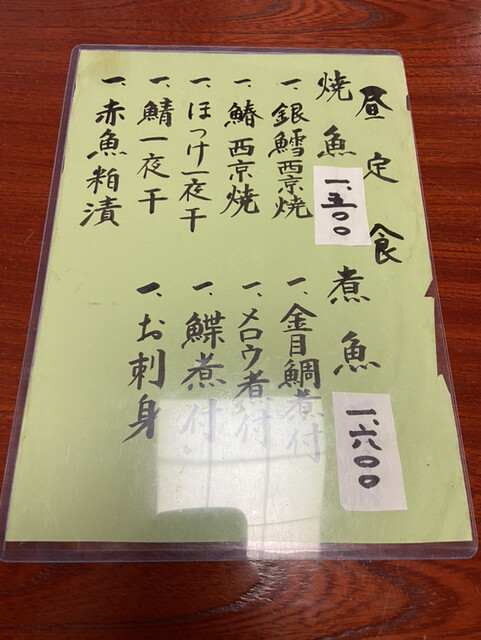 昼定食
焼魚 一、五〇〇
一、銀鱈西京焼
一、鰆西京焼
一、ほっけ一夜干
一、鯖一夜干
一、赤魚粕漬
煮魚 一、六〇〇
一、金目鯛煮付
一、メロウ煮付
一、鰈煮付
一、お刺身